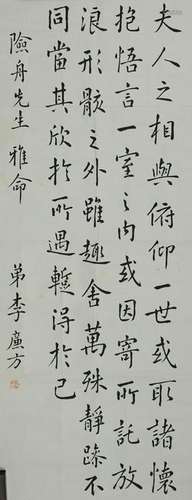 夫人之相與俯仰一世或取諸懷
抱悟言一室之內或因寄所託放
浪形骸之外雖趣舍萬殊靜躁不
同當其欣於所遇蹔得於己
險舟先生雅命
弟李廣方